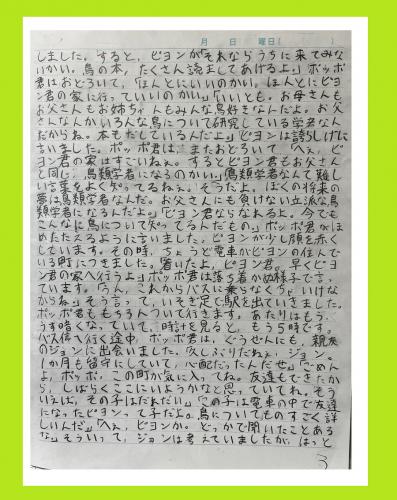 月 日 曜日( )
しました。すると、ピヨンが「それならうちに来てみな
いかい。鳥の本、たくさん読ましてあげるよ。」ポッポ
君はおどろいて、「ほんとにいいのかい。ほんとにピヨ
ン君の家に行っていいのかい。」「いいとも。お母さんも
お父さんもお姉ちゃんもみんな鳥好きなんだよ。お父
さんなんかいろんな鳥について研究している学者なん
だからね。本もだしているんだよ。」ピヨンは誇らしげに
言いました。ポッポ君は、またおどろいて「へえ、ピ
ヨン君の家はすごいねえ。するとピヨン君もお父さん
と同じ、鳥類学者になるのかい。」「鳥類学者なんて難し
い言葉をよく知ってるねえ。そうだよ。ぼくの将来の
夢は鳥類学者なんだ。お父さんにも負けない立派な鳥
類学者になるんだよ。」「ピヨン君ならなれるよ。今でも
こんなに鳥について知ってるんだもの。」ポッポ君がほ
めたたえるように言いました。ピヨンが少し顔を赤く
しています。その時、ちょうど電車がピヨンの住んで
いる町につきました。「着いたよ、ピヨン君。早くピヨ
ン君の家へ行うよ。」ポッポ君は落ち着かぬ様子で言っ
ています。「うん、これからバスに乗らなくちゃいけな
いからね。」そう言って、いそぎ足で駅を出ていきました。
ポッポ君ももちろんついて行きます。あたりはもう、
うす暗くなっていて、時計を見ると、もう5時です。
バス停へ行く途中、ポッポ君は、ぐうぜんにも、親友
のジョンに出会いました。「久しぶりだねえ、ジョン。
1か月も留守にしていて、心配だったんだぜ。」「ごめん
よ、ポッポ。この町が気に入ってね。友達もできたか
ら、しばらくここにいようかなと思っていてね。そう
いえば、その子はだれだい。」「この子は電車の中で友達
になったピヨンって子だよ。鳥についてものすごく詳
しいんだ。」「へえ、ピヨンか。どっかで聞いたことある
な。」そういって、ジョンは考えていましたが、はっと
3